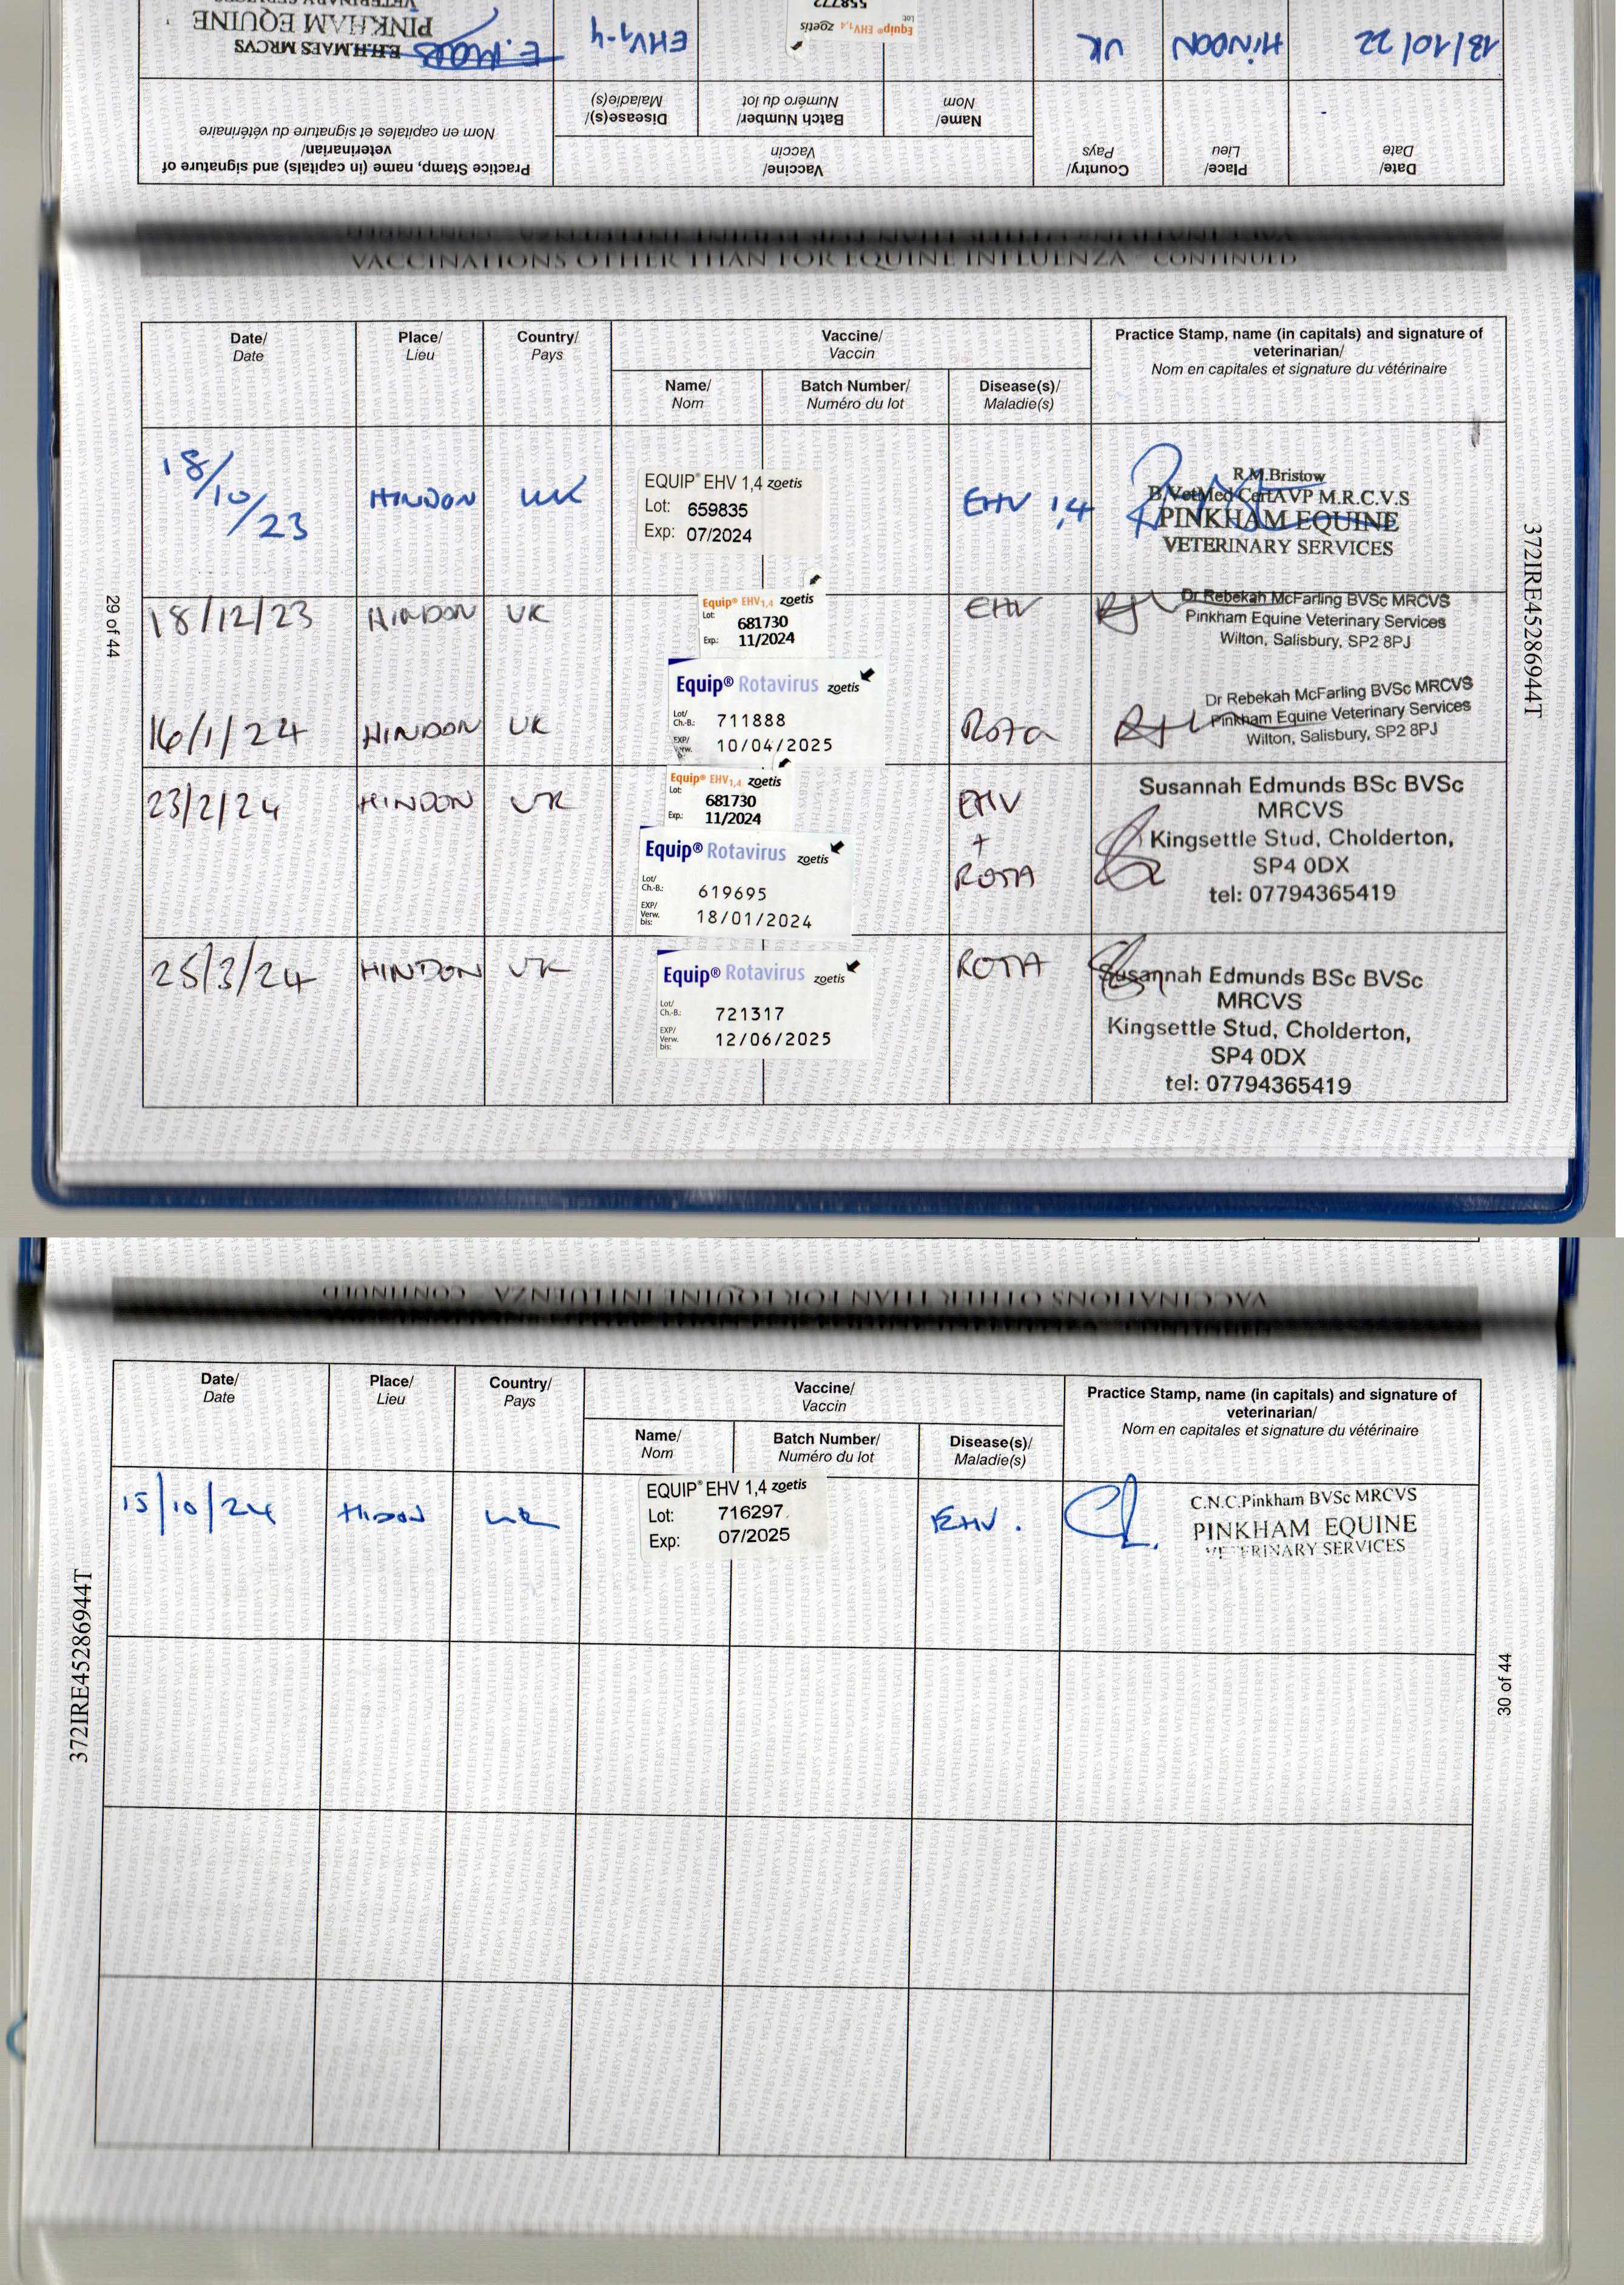 Date/
Date
Place/
Lieu
Country/
Pays
Vaccine/
Vaccin
Practice Stamp, name (in capitals) and signature of
veterinarian/
Nom en capitales et signature du vétérinaire
Name/
Nom
Batch Number/
Numéro du lot
Disease(s)/
Maladie(s)
13/10/22
HINDON
UK
Equip® EHV1,4 zoetis
Lot:
558772
EHV1-4
E.H.H.MAES MRCVS
PINKHAM EQUINE
VETERINARY SERVICES
VACCINATIONS OTHER THAN FOR EQUINE INFLUENZA - CONTINUED
Date/
Date
Place/
Lieu
Country/
Pays
Vaccine/
Vaccin
Practice Stamp, name (in capitals) and signature of
veterinarian/
Nom en capitales et signature du vétérinaire
Name/
Nom
Batch Number/
Numéro du lot
Disease(s)/
Maladie(s)
18/10/23
HINDON
UK
EQUIP® EHV 1,4 zoetis
Lot: 659835
Exp: 07/2024
EHV 1,4
R.M.Bristow
B.VetMed CertAVP M.R.C.V.S
PINKHAM EQUINE
VETERINARY SERVICES
18/12/23
HINDON
UK
Equip® EHV1,4 zoetis
Lot: 681730
Exp.: 11/2024
EHV
Dr Rebekah McFarling BVSc MRCVS
Pinkham Equine Veterinary Services
Wilton, Salisbury, SP2 8PJ
16/1/24
HINDON
UK
Equip® Rotavirus zoetis
Lot/
Ch.-B.: 711888
EXP/
Verw. 10/04/2025
Rota
Dr Rebekah McFarling BVSc MRCVS
Pinkham Equine Veterinary Services
Wilton, Salisbury, SP2 8PJ
23/2/24
HINDON
UK
Equip® EHV1,4 zoetis
Lot: 681730
Exp.: 11/2024
Equip® Rotavirus zoetis
Lot/
Ch.-B.: 619695
EXP/
Verw.
bis: 18/01/2024
EHV
+
ROTA
Susannah Edmunds BSc BVSc
MRCVS
Kingsettle Stud, Cholderton,
SP4 0DX
tel: 07794365419
25/3/24
HINDON
UK
Equip® Rotavirus zoetis
Lot/
Ch.-B.: 721317
EXP/
Verw.
bis: 12/06/2025
ROTA
Susannah Edmunds BSc BVSc
MRCVS
Kingsettle Stud, Cholderton,
SP4 0DX
tel: 07794365419
29 of 44
372IRE45286944T
VACCINATIONS OTHER THAN FOR EQUINE INFLUENZA - CONTINUED
Date/
Date
Place/
Lieu
Country/
Pays
Vaccine/
Vaccin
Practice Stamp, name (in capitals) and signature of
veterinarian/
Nom en capitales et signature du vétérinaire
Name/
Nom
Batch Number/
Numéro du lot
Disease(s)/
Maladie(s)
15/10/24
HIDON
UK
EQUIP® EHV 1,4 zoetis
Lot: 716297
Exp: 07/2025
EHV.
C.N.C.Pinkham BVSc MRCVS
PINKHAM EQUINE
VETERINARY SERVICES
372IRE45286944T
30 of 44